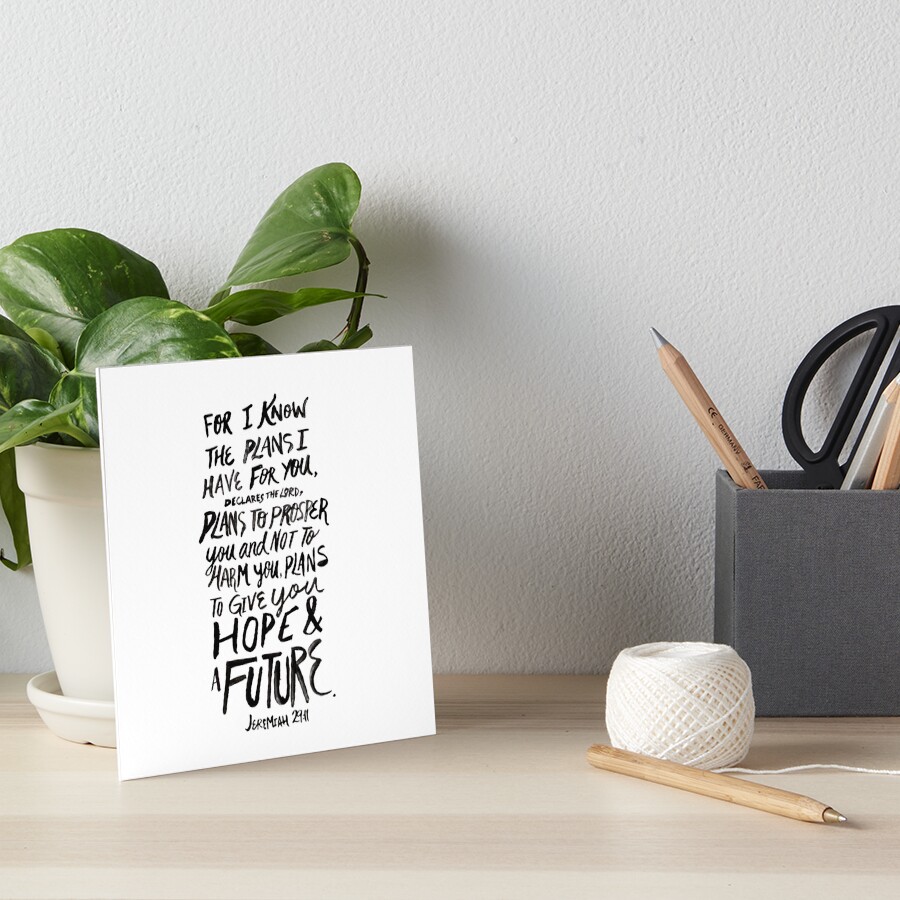 FOR I KNOW
THE PLANS I
HAVE FOR YOU,
DECLARES THE LORD,
PLANS TO PROSPER
you and NOT TO
HARM YOU, PLANS
TO GIVE you
HOPE &
A FUTURE.
JEREMIAH 29:11
CE GERMANY 1 FA